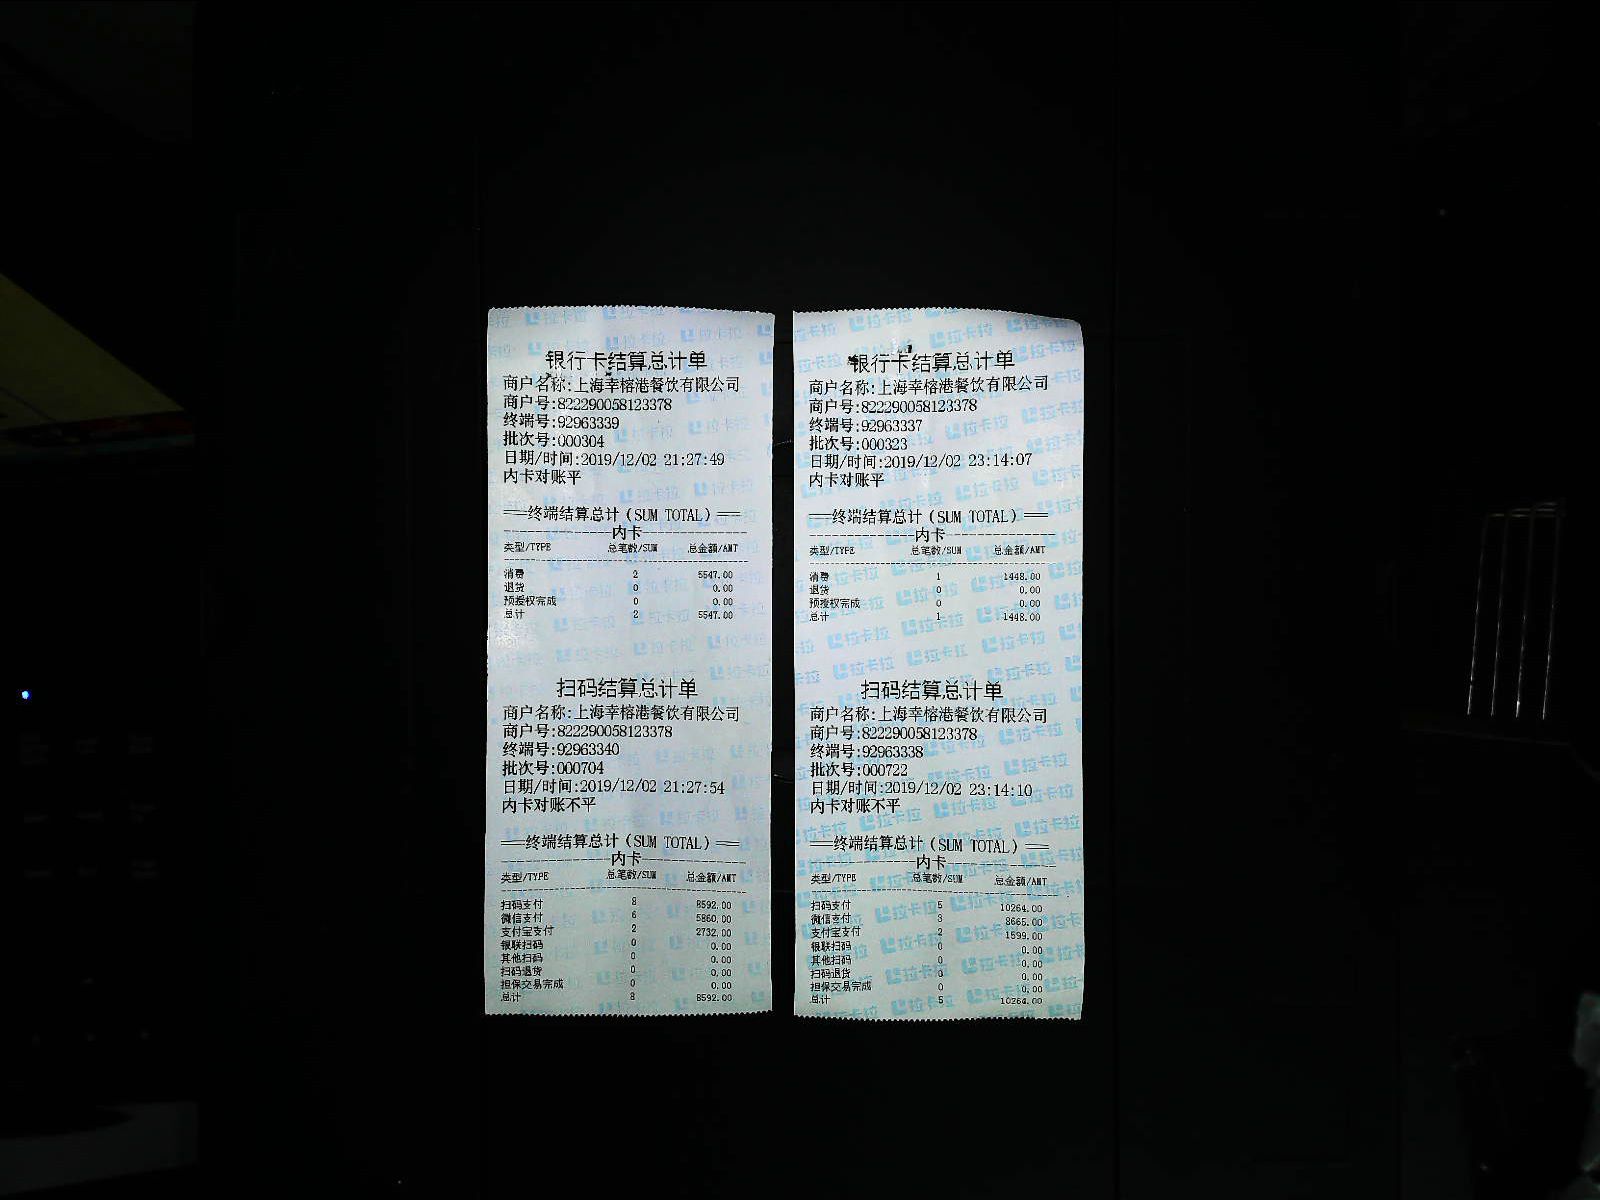 银行卡结算总计单
商户名称:上海幸榕港餐饮有限公司
商户号:822290058123378
终端号:92963339
批次号:000304
日期/时间:2019/12/02 21:27:49
内卡对账平
══终端结算总计(SUM TOTAL)══
内卡
类型/TYPE 总笔数/SUM 总金额/AMT
消费 2 5547.00
退货 0 0.00
预授权完成 0 0.00
总计 2 5547.00
扫码结算总计单
商户名称:上海幸榕港餐饮有限公司
商户号:822290058123378
终端号:92963340
批次号:000704
日期/时间:2019/12/02 21:27:54
内卡对账不平
══终端结算总计(SUM TOTAL)══
内卡
类型/TYPE 总笔数/SUM 总金额/AMT
扫码支付 8 8592.00
微信支付 6 5860.00
支付宝支付 2 2732.00
银联扫码 0 0.00
其他扫码 0 0.00
扫码退货 0 0.00
担保交易完成 0 0.00
总计 8 8592.00
银行卡结算总计单
商户名称:上海幸榕港餐饮有限公司
商户号:822290058123378
终端号:92963337
批次号:000323
日期/时间:2019/12/02 23:14:07
内卡对账平
══终端结算总计(SUM TOTAL)══
内卡
类型/TYPE 总笔数/SUM 总金额/AMT
消费 1 1448.00
退货 0 0.00
预授权完成 0 0.00
总计 1 1448.00
扫码结算总计单
商户名称:上海幸榕港餐饮有限公司
商户号:822290058123378
终端号:92963338
批次号:000722
日期/时间:2019/12/02 23:14:10
内卡对账不平
══终端结算总计(SUM TOTAL)══
内卡
类型/TYPE 总笔数/SUM 总金额/AMT
扫码支付 5 10264.00
微信支付 3 8665.00
支付宝支付 2 1599.00
银联扫码 0 0.00
其他扫码 0 0.00
扫码退货 0 0.00
担保交易完成 0 0.00
总计 5 10264.00